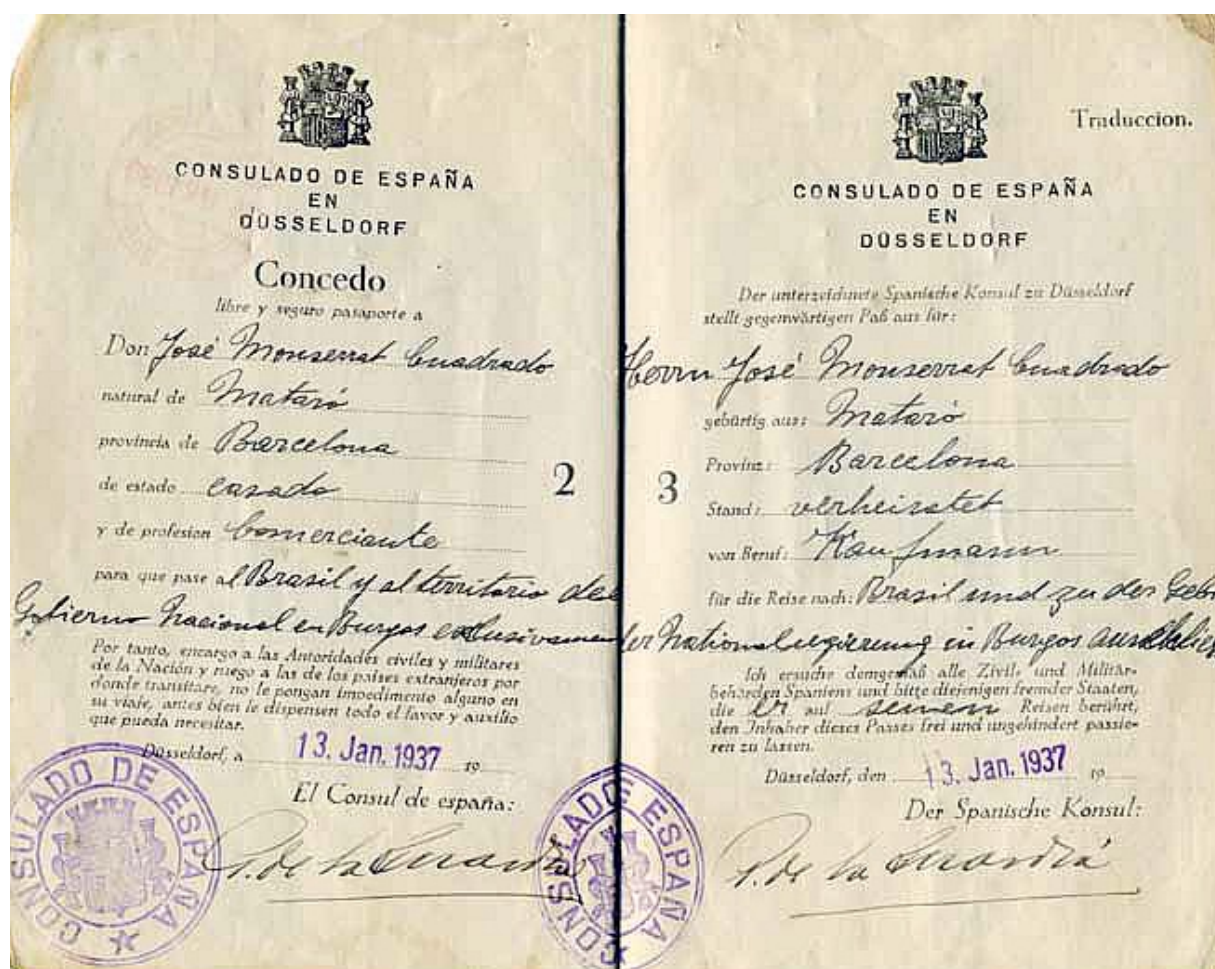 CONSULADO DE ESPAÑA
EN
DÜSSELDORF
Concedo
libre y seguro pasaporte a
Don José Monserrat Cuadrado
natural de Mataró
provincia de Barcelona
de estado casado
y de profesion Comerciante
para que pase al Brasil y al territorio del
Gobierno Nacional en Burgos exclusivamen
Por tanto, encargo a las Autoridades civiles y militares
de la Nación y ruego a las de los países extranjeros por
donde transitare, no le pongan impedimento alguno en
su viaje, antes bien le dispensen todo el favor y auxilio
que pueda necesitar.
Düsseldorf, a 13. Jan. 1937 19
El Consul de españa:
P. de la Guardia
CONSULADO DE ESPAÑA
2
Traduccion.
CONSULADO DE ESPAÑA
EN
DÜSSELDORF
Der unterzeichnete Spanische Konsul zu Düsseldorf
stellt gegenwärtigen Paß aus für:
Herrn José Monserrat Cuadrado
gebürtig aus: Mataró
Provinz: Barcelona
Stand: verheiratet
von Beruf: Kaufmann
für die Reise nach: Brasil und zu der Geb
der Nationalregierung in Burgos
Ich ersuche demgemäß alle Zivil- und Militär-
behörden Spaniens und bitte diejenigen fremder Staaten,
die er auf seinen Reisen berührt,
den Inhaber dieses Passes frei und ungehindert passie-
ren zu lassen.
Düsseldorf, den 13. Jan. 1937 19
Der Spanische Konsul:
P. de la Guardia
CONSULADO DE ESPAÑA
3